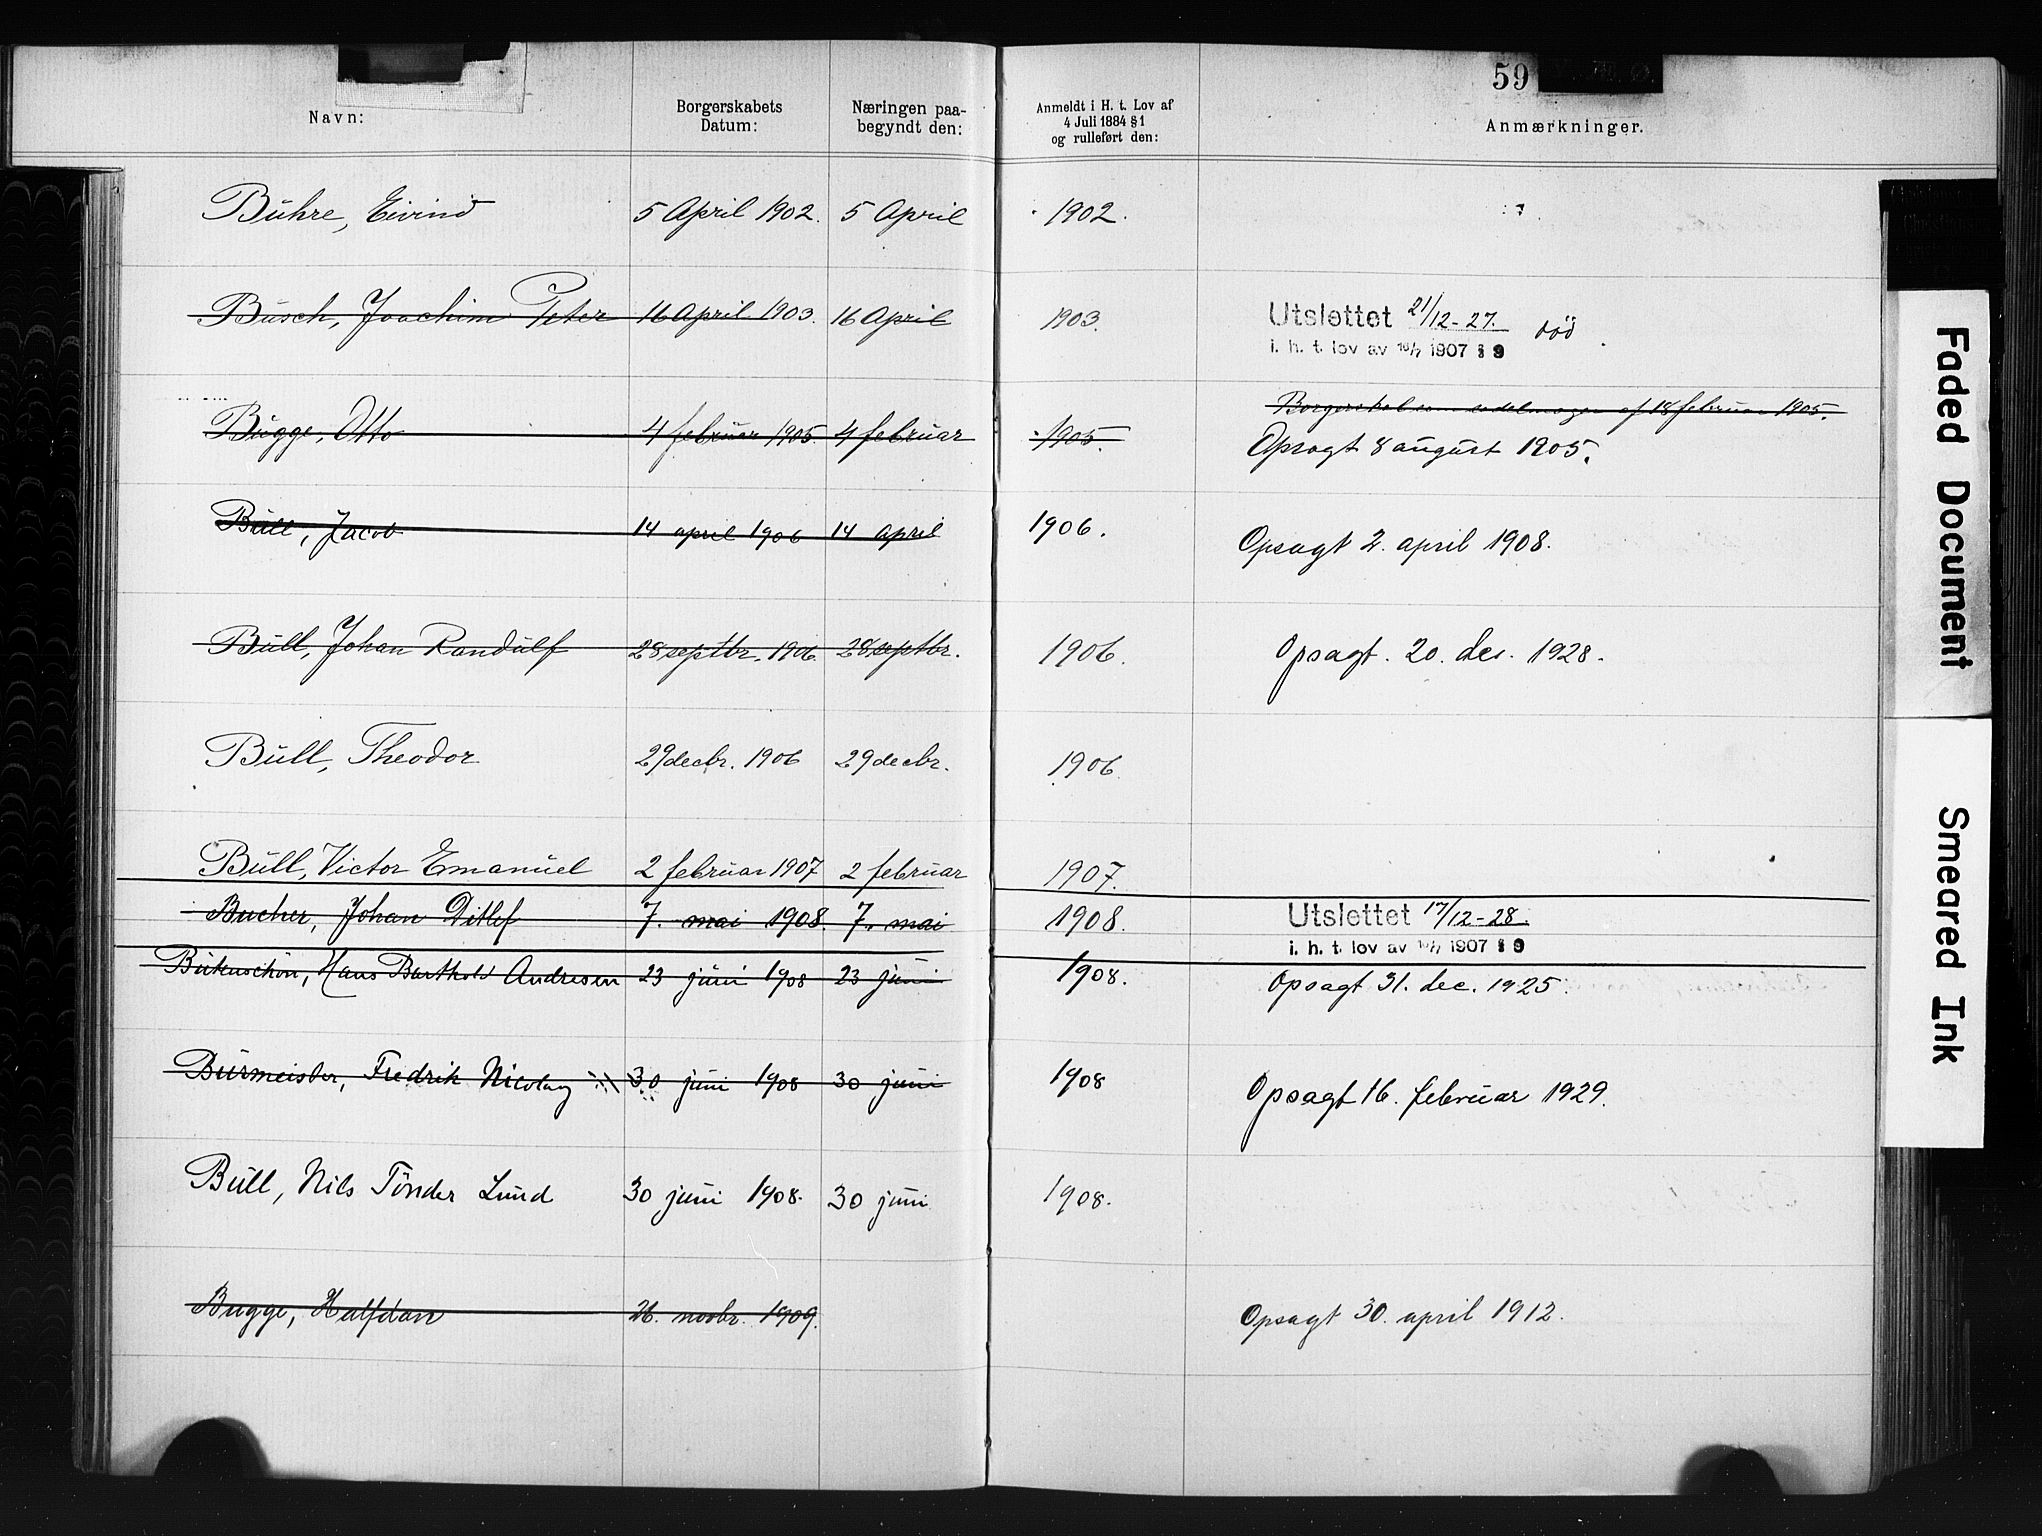 59
Navn: Borgerskabets Datum: Næringen paa- begyndt den: Anmeldt i H. t. Lov af 4 Juli 1884 § 1 og rulleført den: Anmærkninger.
Buhre, Eivind 5 April 1902. 5 April 1902.
Busch, Joachim Peter 16 April 1903. 16 April 1903. Utslettet 21/12-27. död.
i. h. t. lov av 16/7 1907 § 9
Borgerskab som af 18 februar 1905.
Bugge, Otto 4 februar 1905 4 februar 1905. Opsagt 8 august 1905.
Bull, Jacob 14 april 1906 14 april 1906. Opsagt 2. april 1908.
Bull, Johan Randulf 28 septbr. 1906. 28 septbr. 1906. Opsagt. 20. des. 1928.
Bull, Theodor 29 decbr. 1906 29 decbr. 1906
Bull, Victor Emanuel 2 februar 1907 2 februar 1907.
Bucher, Johan Ditlef 7. mai 1908. 7. mai 1908. Utslettet 17/12-28.
i. h. t. lov av 16/7 1907 § 9
Hans Barthold Andresen 23 juni 1908 23 juni 1908. Opsagt 31. dec. 1925.
Burmeister, Fredrik Nicolay 30 juni 1908 30 juni 1908 Opsagt 16. februar 1929.
Bull, Nils Tönder Lund 30 juni 1908. 30 juni 1908.
Bugge, Halfdan 26. novbr. 1909. Opsagt 30. april 1912.
Faded Document
Smeared Ink